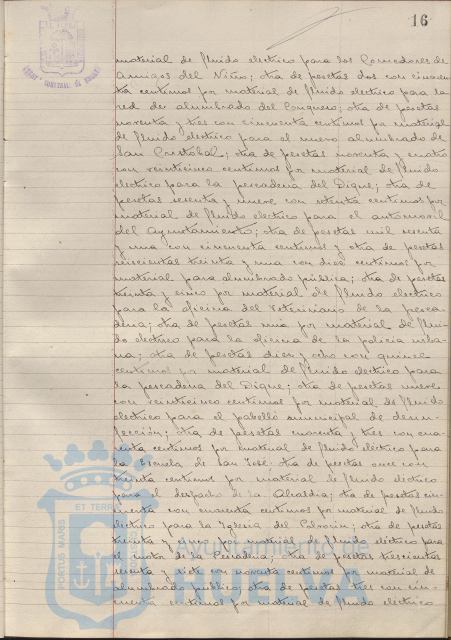 16
material de fluido electrico para los Comedores de
Amigos del Niño; otra de pesetas dos con cincuen
ta centimos por material de fluido electrico para la
red de alumbrado del Conquero; otra de pesetas
noventa y tres con cincuenta centimos por material
de fluido electrico para el nuevo alumbrado de
San Cristóbal; otra de pesetas noventa y cuatro
con veinticinco centimos por material de fluido
electrico para la pescaderia del Dique; otra de
pesetas sesenta y nueve con setenta centimos por
material de fluido electrico para el automovil
del Ayuntamiento; otra de pesetas mil sesenta
y una con cincuenta centimos y otra de pesetas
seiscientas treinta y una con diez centimos por
material para alumbrado público; otra de pesetas
treinta y cinco por material de fluido electrico
para la oficina del Veterinario de la pesca-
deria; otra de pesetas una por material de flui-
do electrico para la oficina de la policia urba-
na; otra de pesetas diez y ocho con quince
centimos por material de fluido electrico para
la pescaderia del Dique; otra de pesetas nueve
con veinticinco centimos por material de fluido
electrico para el pabelló municipal de desin-
fección; otra de pesetas cuarenta y tres con cua-
renta centimos por material de fluido electrico para
la Escuela de San José; otra de pesetas once con
treinta centimos por material de fluido electrico
para el despacho de la Alcaldia; otra de pesetas cin-
cuenta con cuarenta centimos por material de fluido
electrico para la Iglesia del Polvorin; otra de pesetas
treinta y cinco por material de fluido electrico para
el motor de la Pescaderia; otra de pesetas trescientas
sesenta y siete con noventa centimos por material de
alumbrado publico; otra de pesetas tres con cin-
cuenta centimos por material de fluido electrico
ET TERRAE
PORTUS MARIS